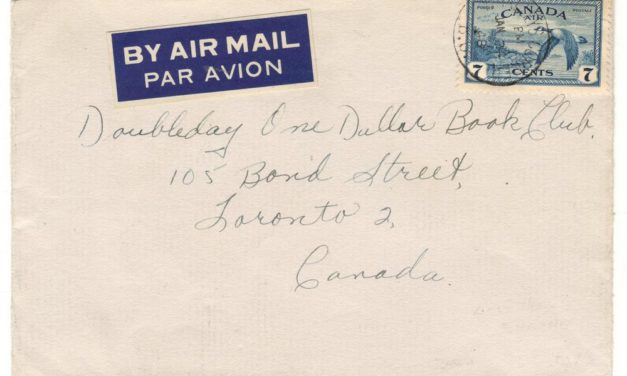 BY AIR MAIL
PAR AVION
POSTES POSTAGE
CANADA
AIR
7 CENTS 7
PM
JAN
Doubleday One Dollar Book Club,
105 Bond Street,
Toronto 2,
Canada.